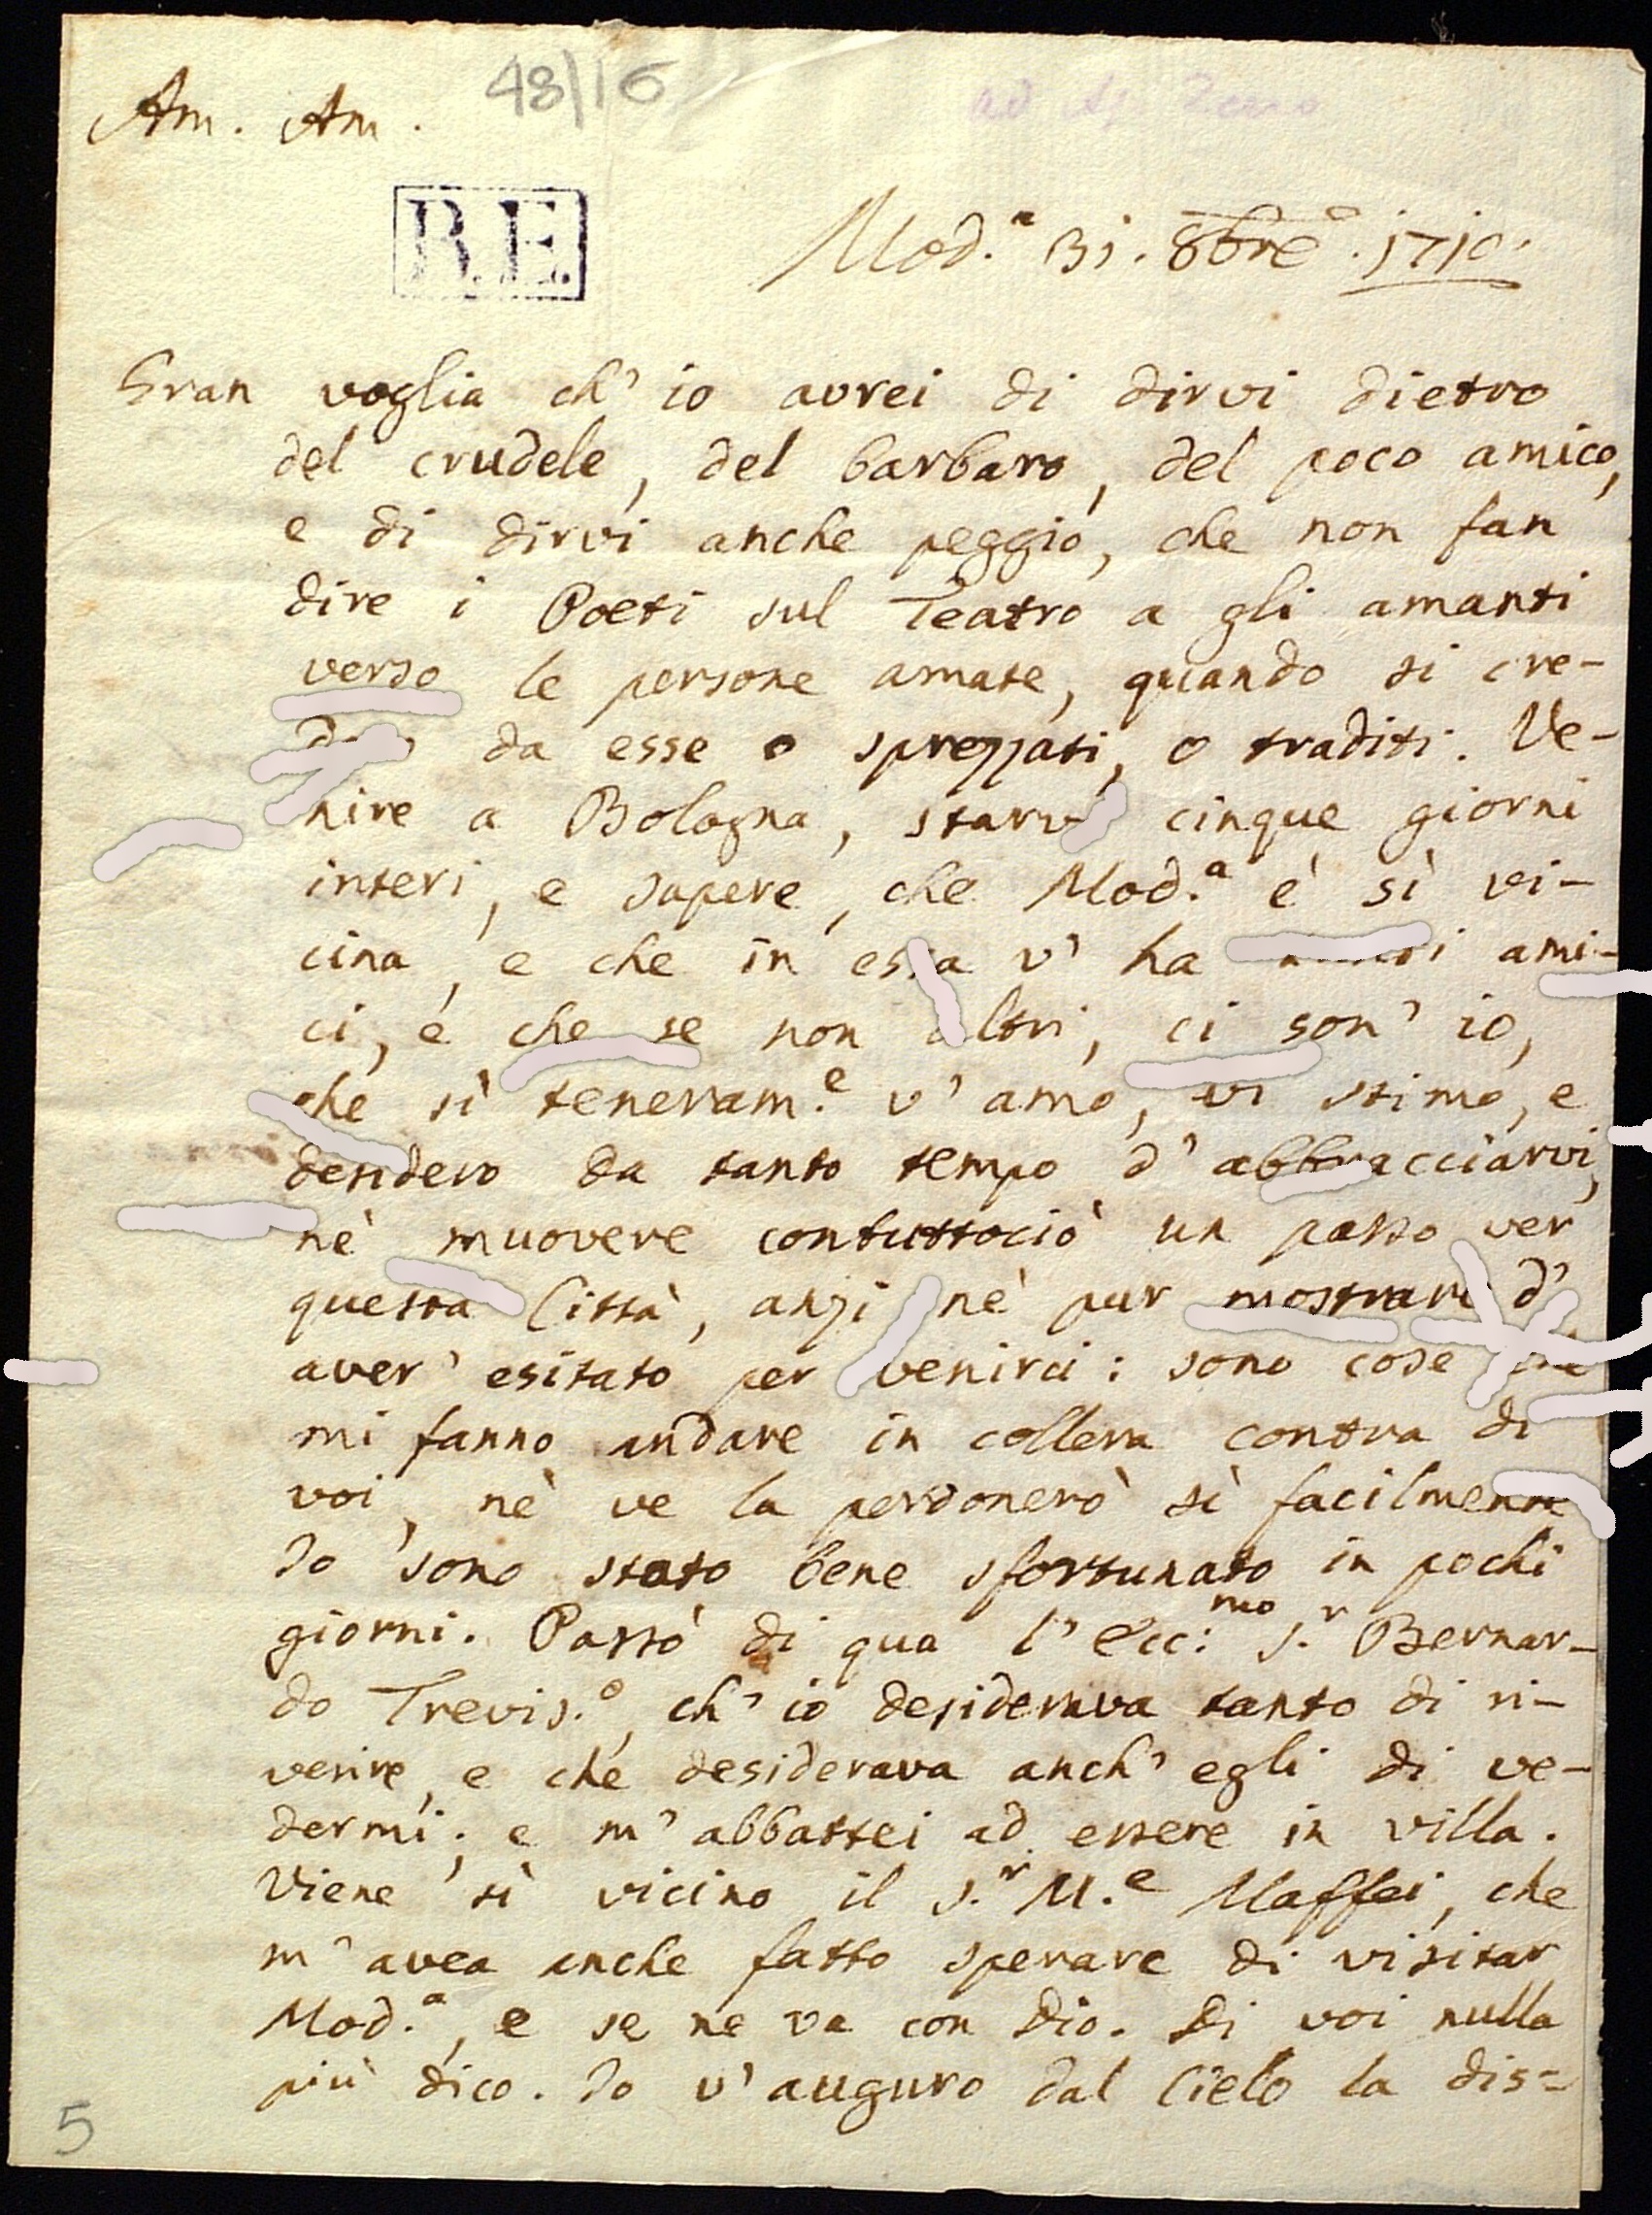 48/16
Am. Am.
ad Ap. Zeno
B.E.
Mod.ª 31. 8bre 1710.
Gran voglia ch' io avrei di dirvi dietro
del crudele, del barbaro, del poco amico,
e di dirvi anche peggio, che non fan
dire i Poeti sul Teatro a gli amanti
verso le persone amate, quando si cre-
da esse o sprezzati, o traditi. Ve-
nire a Bologna, starvi cinque giorni
interi, e sapere, che Mod.ª è sì vi-
cina, e che in essa v' ha ami-
ci, e che se non altri, ci son' io,
che sì teneram.e v' amo, vi stimo, e
desidero da tanto tempo d' abbracciarvi,
nè muovere contuttociò un passo ver
questa Città, anzi nè pur mostrare d'
aver' esitato per venirci: sono cose che
mi fanno andare in collera contra di
voi, nè ve la perdonerò sì facilmente
Io sono stato bene sfortunato in pochi
giorni. Passò di qua l' Ecc:mo S.r Bernar-
do Trevis.o, ch' io desiderava tanto di ri-
verire, e che desiderava anch' egli di ve-
dermi; e m' abbattei ad essere in villa.
Viene sì vicino il S.r M.e Maffei, che
m' avea anche fatto sperare di visitar
Mod.ª, e se ne va con Dio. Di voi nulla
più dico. Io v' auguro dal Cielo la dis-
5